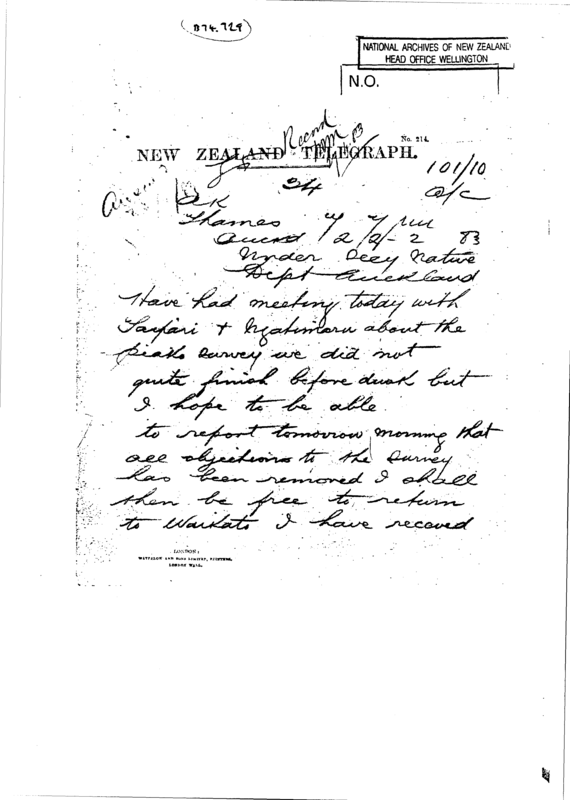 (B74.729)
NATIONAL ARCHIVES OF NEW ZEALAND
HEAD OFFICE WELLINGTON
N.O.
Record
No. 214.
NEW ZEALAND TELEGRAPH.
101/10
34
a/c
Thames
Auend 2/2-2 83
Under Secy Native
Dept Auckland
Have had meeting today with
Taipari + Ngatimaru about the
piako survey we did not
quite finish before dusk but
I hope to be able
to report tomorrow morning that
all objections to the survey
has been removed I shall
then be free to return
to Waikato I have receved
LONDON:
WATERLOW AND SONS LIMITED, PRINTERS,
LONDON WALL.